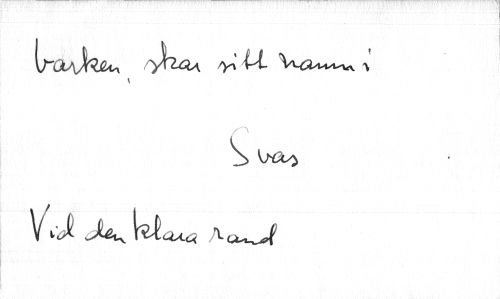 barken, skar sitt namn i
Svas
Vid den klara rand